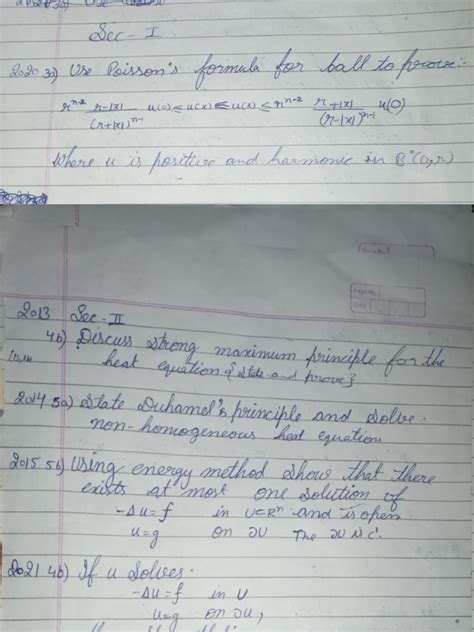 Sec - I
2020 3a) Use Poisson's formula for ball to prove:-
r^{n-2} \frac{r-|x|}{(r+|x|)^{n-1}} u(0) ≤ u(x) ≤ u(x) ≤ r^{n-2} \frac{r+|x|}{(r-|x|)^{n-1}} u(0)
Where u is positive and harmonic in B°(0,r)
Page No.
Date
2013 Sec - II
4b) Discuss strong maximum principle for the
heat equation {State and prove}
2014 5a) State Duhamel's principle and solve.
non-homogeneous heat equation
2015 5b) Using energy method show that there
exists at most one solution of
-Δu=f in U∈Rⁿ and is open
u=g on ∂U The ∂U is C'.
2021 4b) If u solves.
-Δu=f in U
u=g on ∂U,